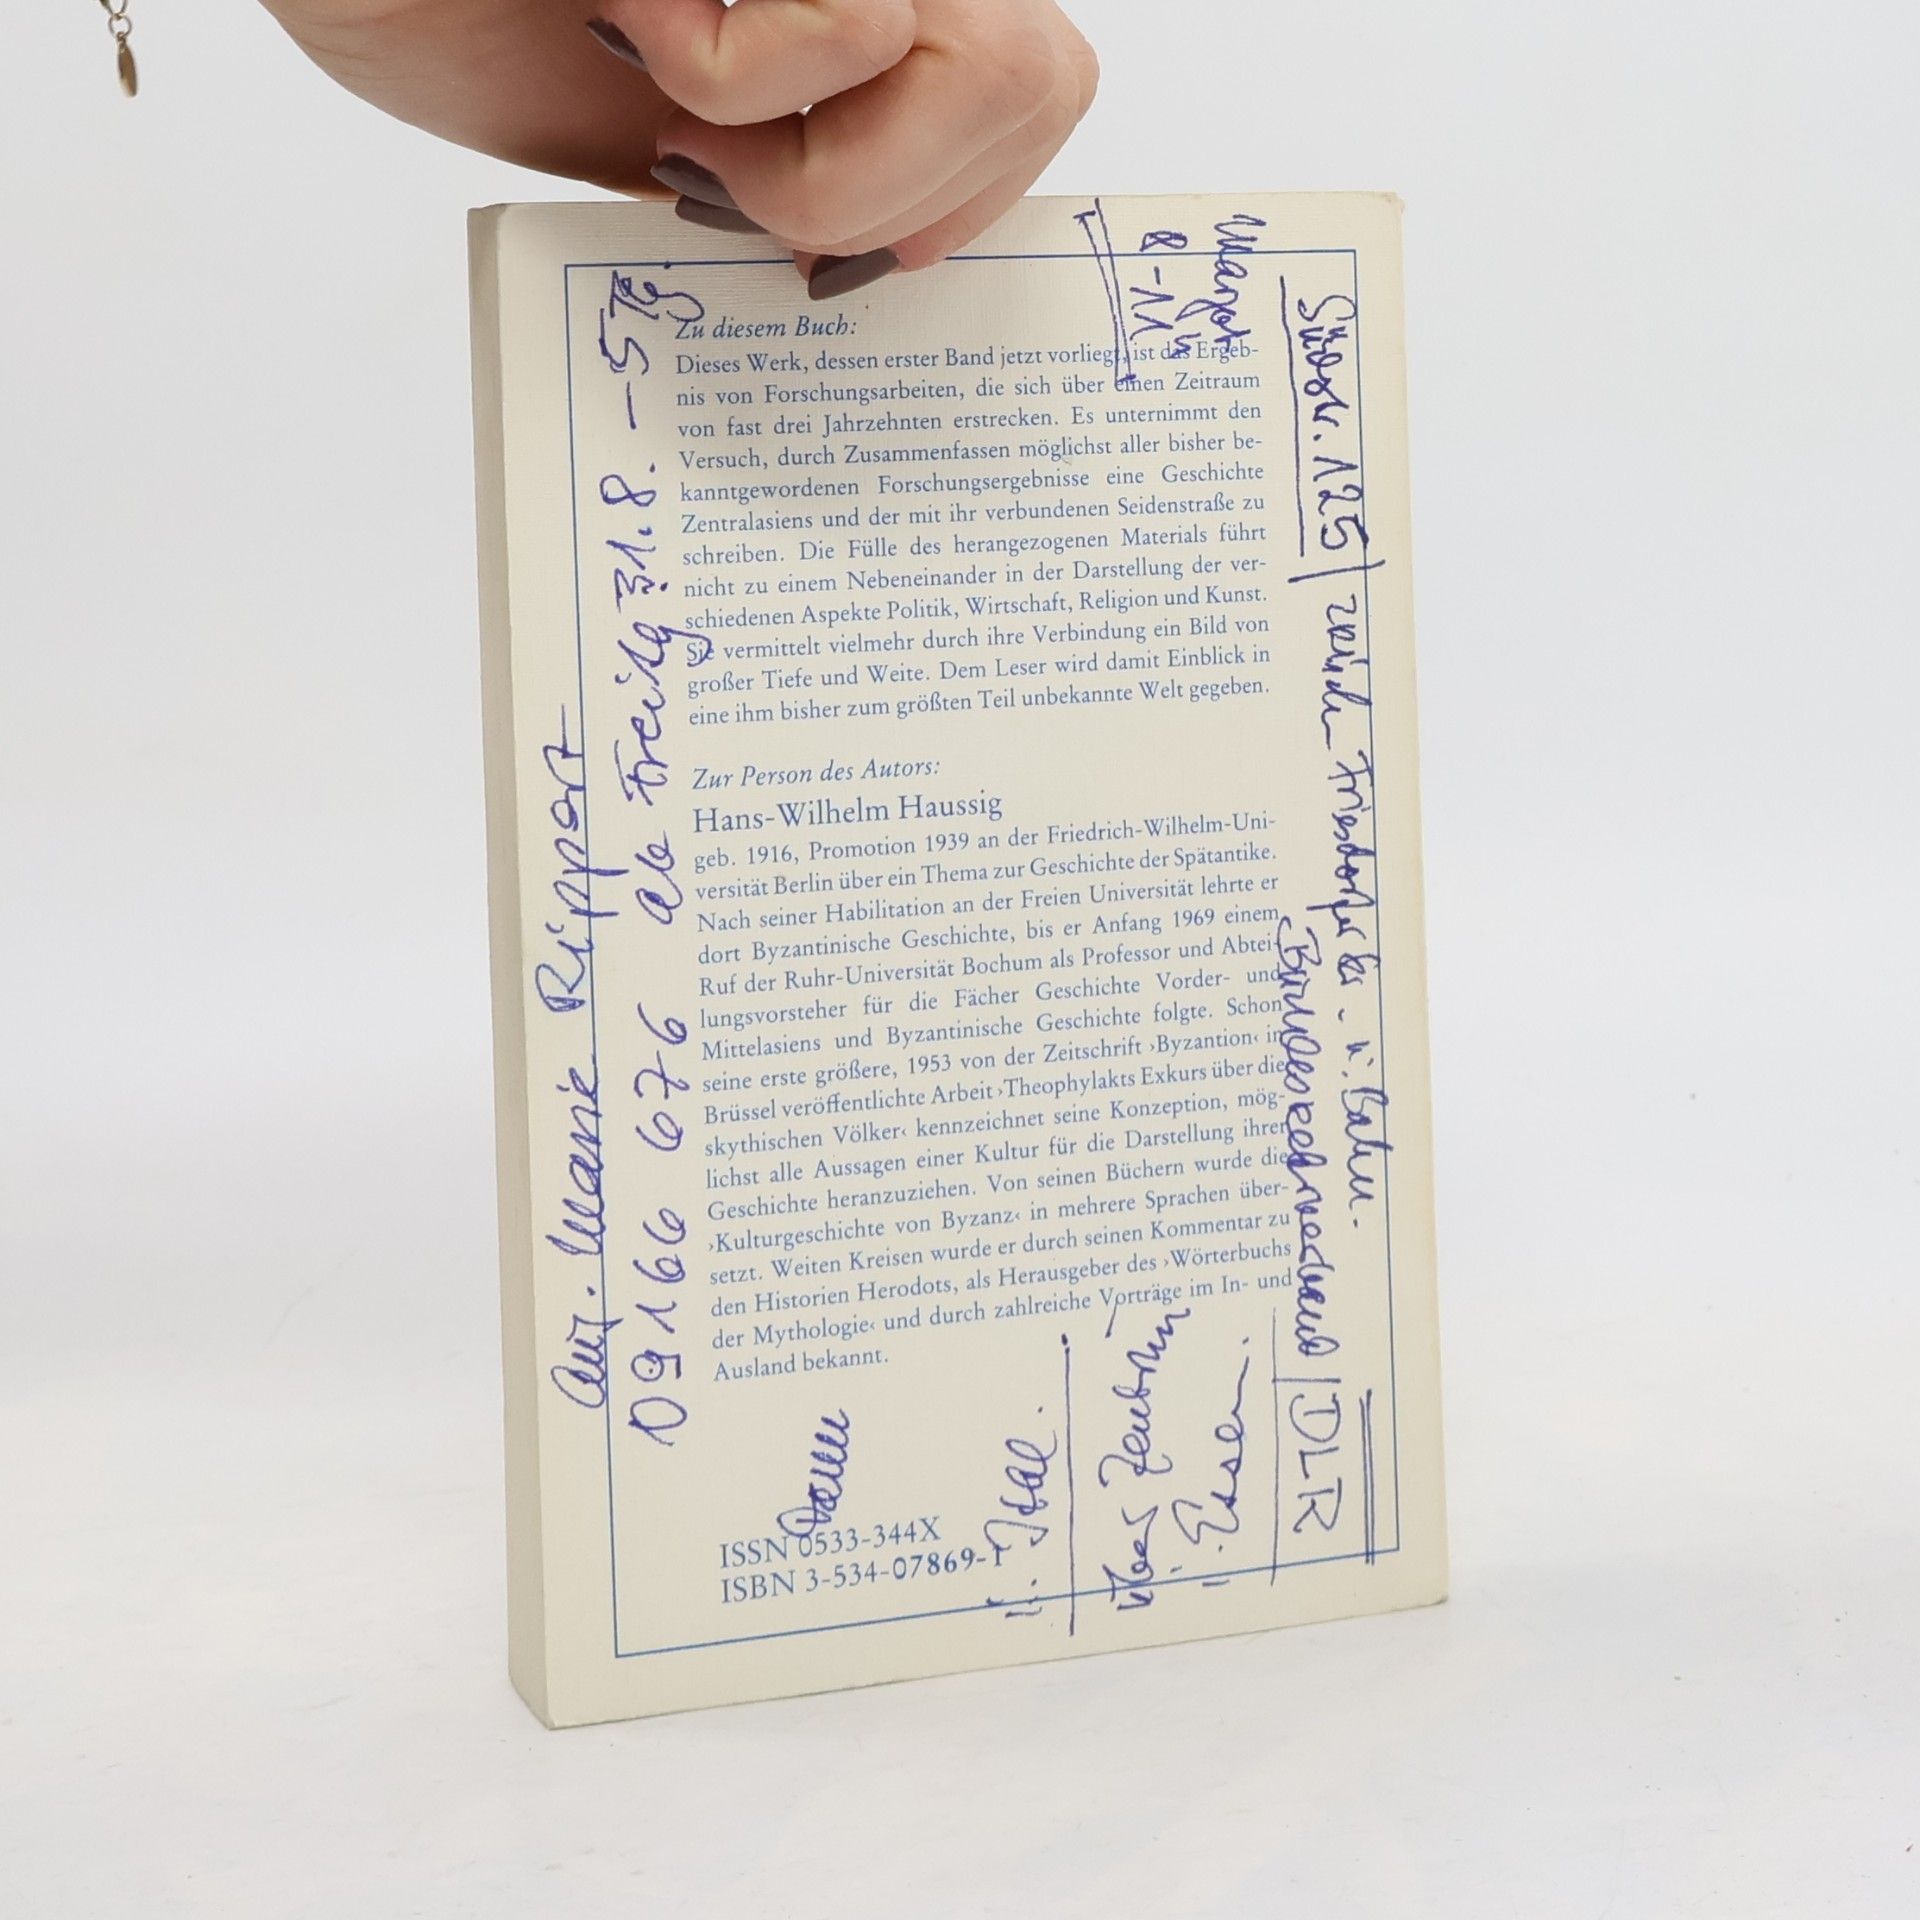 Zu diesem Buch:
Dieses Werk, dessen erster Band jetzt vorliegt, ist das Ergeb-
nis von Forschungsarbeiten, die sich über einen Zeitraum
von fast drei Jahrzehnten erstrecken. Es unternimmt den
Versuch, durch Zusammenfassen möglichst aller bisher be-
kanntgewordenen Forschungsergebnisse eine Geschichte
Zentralasiens und der mit ihr verbundenen Seidenstraße zu
schreiben. Die Fülle des herangezogenen Materials führt
nicht zu einem Nebeneinander in der Darstellung der ver-
schiedenen Aspekte Politik, Wirtschaft, Religion und Kunst.
Sie vermittelt vielmehr durch ihre Verbindung ein Bild von
großer Tiefe und Weite. Dem Leser wird damit Einblick in
eine ihm bisher zum größten Teil unbekannte Welt gegeben.
Zur Person des Autors:
Hans-Wilhelm Haussig
geb. 1916, Promotion 1939 an der Friedrich-Wilhelm-Uni-
versität Berlin über ein Thema zur Geschichte der Spätantike.
Nach seiner Habilitation an der Freien Universität lehrte er
dort Byzantinische Geschichte, bis er Anfang 1969 einem
Ruf der Ruhr-Universität Bochum als Professor und Abtei-
lungsvorsteher für die Fächer Geschichte Vorder- und
Mittelasiens und Byzantinische Geschichte folgte. Schon
seine erste größere, 1953 von der Zeitschrift ›Byzantion‹ in
Brüssel veröffentlichte Arbeit ›Theophylakts Exkurs über die
skythischen Völker‹ kennzeichnet seine Konzeption, mög-
lichst alle Aussagen einer Kultur für die Darstellung ihrer
Geschichte heranzuziehen. Von seinen Büchern wurde die
›Kulturgeschichte von Byzanz‹ in mehrere Sprachen über-
setzt. Weiten Kreisen wurde er durch seinen Kommentar zu
den Historien Herodots, als Herausgeber des ›Wörterbuchs
der Mythologie‹ und durch zahlreiche Vorträge im In- und
Ausland bekannt.
ISSN 0533-344X
ISBN 3-534-07869-1
Marie Ripport
09166 676 ab Freitg 31.8. – 5 Tg.
Ital.
über
Essen.
Margot
8-11 h
Südstr. 125
Friesdorfer u. Bahn.
DLR